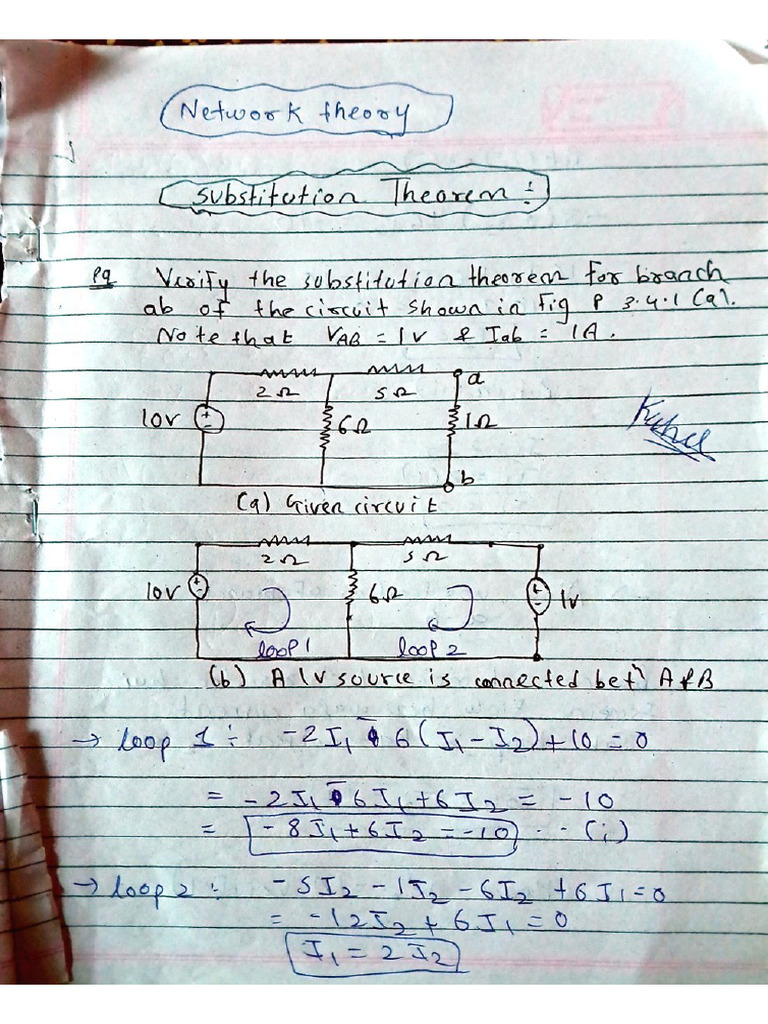 Network theory
Substitution Theorem :
Verify the substitution theorem for branch
ab of the circuit shown in Fig P 3.4.1 (a).
Note that VAB = 1V & Iab = 1A.
2Ω 5Ω a
10V + - 6Ω 1Ω
b
(a) Given circuit
2Ω 5Ω
10V + - 6Ω + - 1V
loop 1 loop 2
(b) A 1V source is connected betn A & B
→ loop 1 : -2I₁ - 6(I₁-I₂)+10 = 0
= -2I₁ - 6I₁+6I₂ = -10
= -8I₁+6I₂ = -10 -- (i)
→ loop 2 : -5I₂ -1I₂ -6I₂ +6I₁=0
= -12I₂ + 6I₁ = 0
I₁ = 2I₂